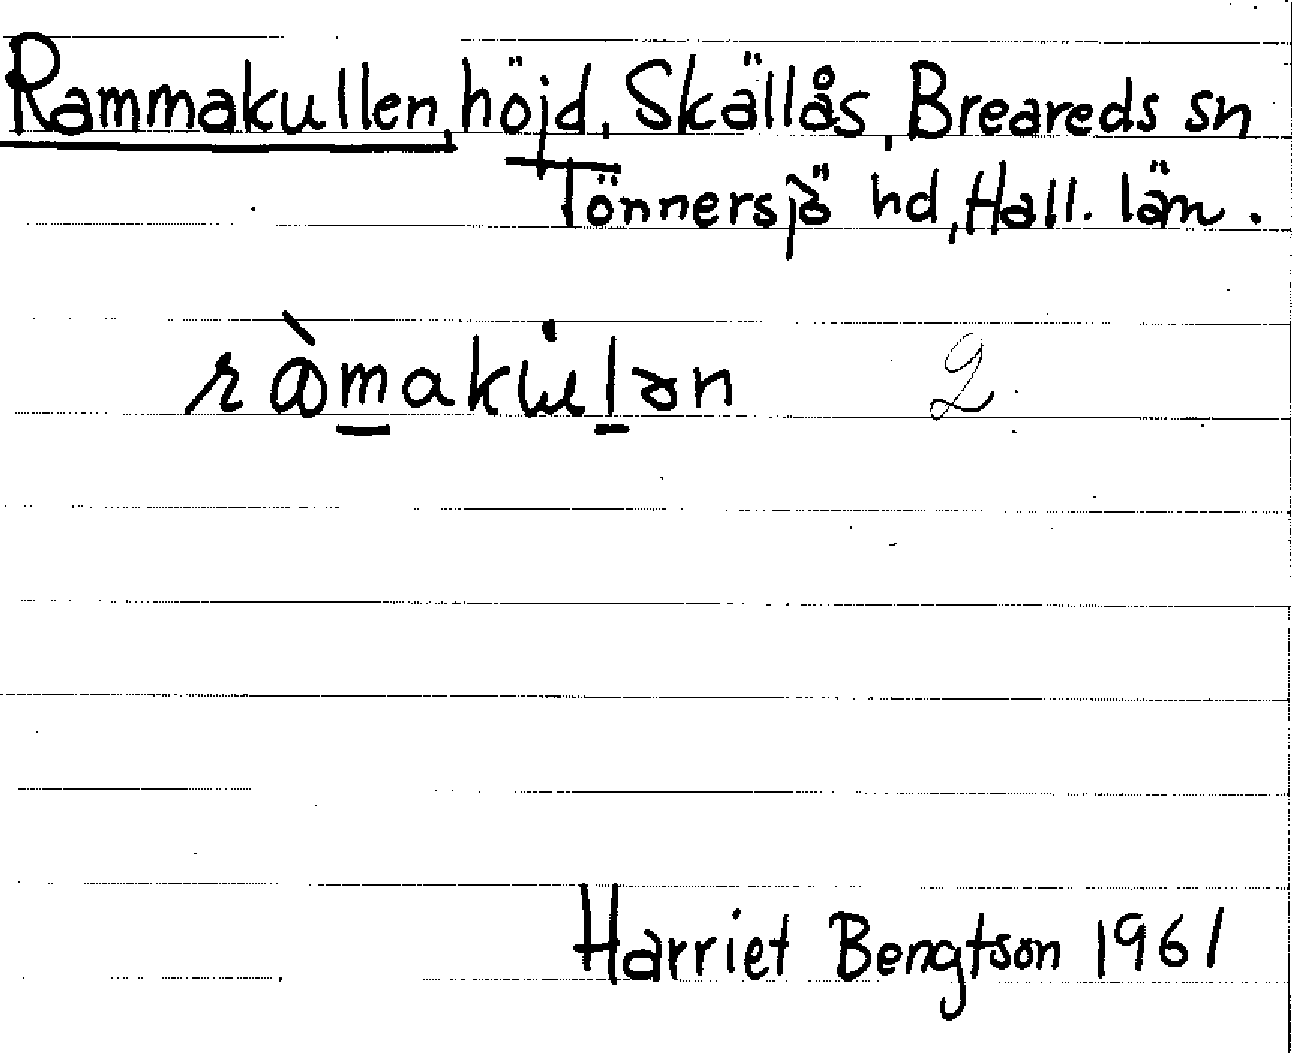 Rammakullen, höjd, Skällås, Breareds sn
Tönnersjö hd, Hall. län.
2
Harriet Bengtson 1961